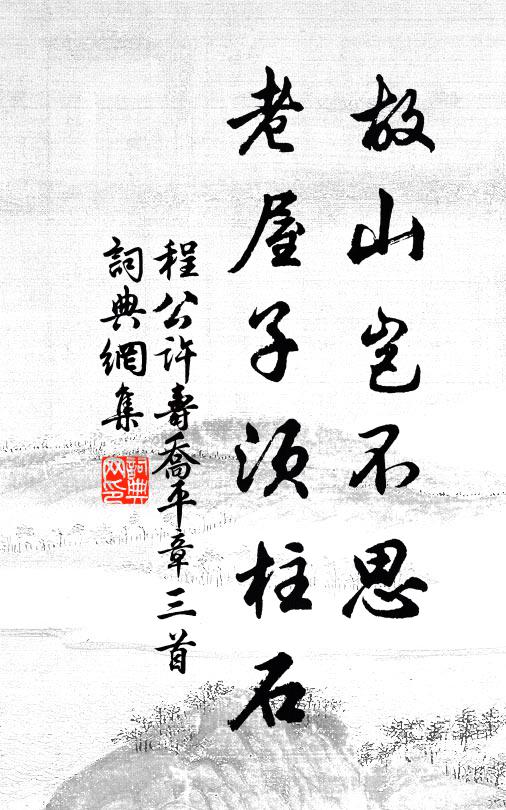 故山岂不思
老屋子須柱石
程公許壽喬平章三首
詞典網集
詞典
网印